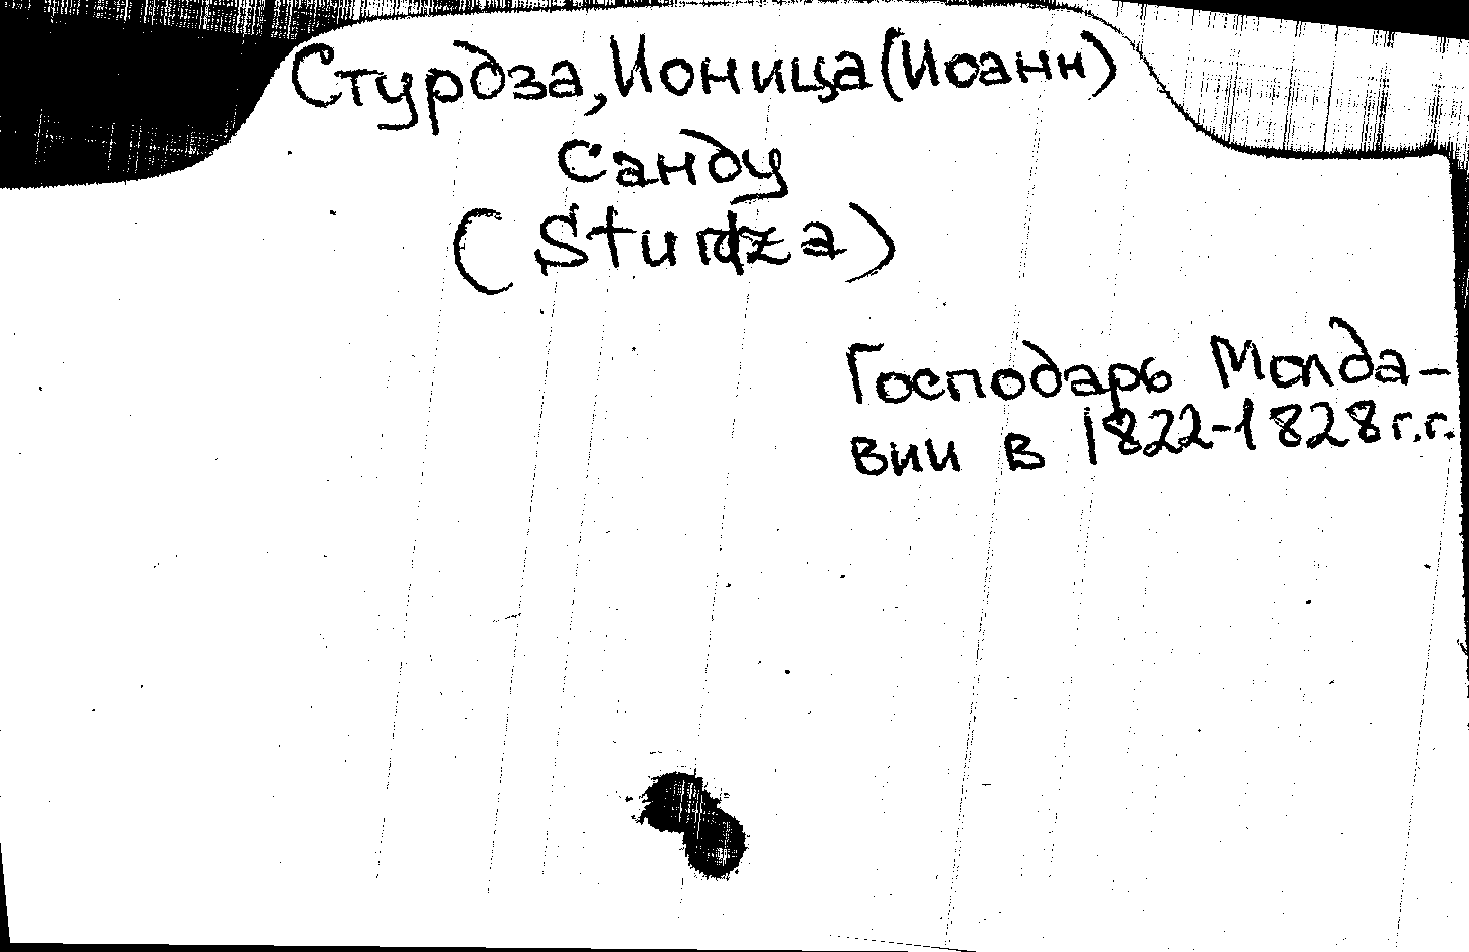 Стурдза, Ионица (Иоанн)
Санду
(Sturdza)
Господарь Молда-
вии в 1822-1828 г.г.